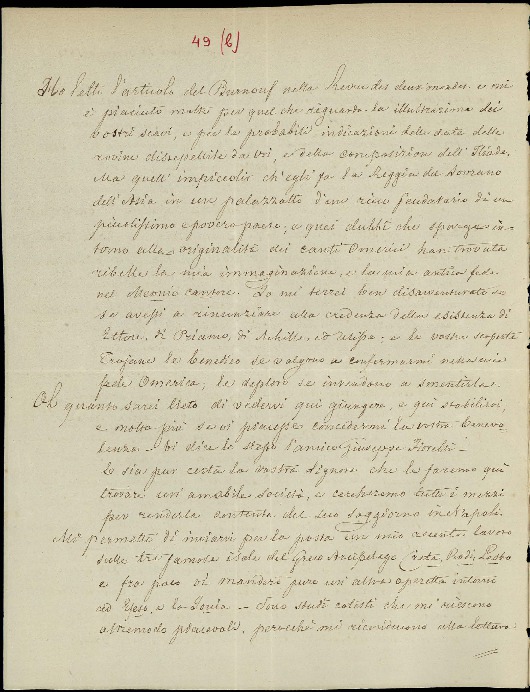 49 (b)
Ho letto l'articolo del Burnouf nella Revue des deux mondes e mi
è piaciuto molto per quel che riguarda la illustrazione dei
vostri scavi, e per le probabili indicazioni della data delle
rovine disseppellite da Voi, e della composizione dell'Iliade.
Ma quell'impicciolir ch'egli fa la Reggia del Sovrano
dell'Asia in un palazzotto d'un ricco feudatario di un
piccolissimo e povero paese, e quei dubbi che sparge in-
torno alla originalità dei canti Omerici han trovata
ribelle la mia immaginazione, e la mia antica fede
nel Meonio cantore. Io mi terrei ben disavventurato se
se avessi a rinunziare alla credenza della esistenza di
Ettore, di Priamo, di Achille, ed Ulisse; e le vostre scoperte
Trojane le benedico se valgono a confermarmi nella mia
fede Omerica; le deploro se intendono a smentirla.
Oh quanto sarei lieto di vedervi qui giungere, e qui stabilirvi,
e molto più se vi piacesse concedermi la vostra benevo-
lenza. Vi dice lo stesso l'amico Giuseppe Fiorelli.
Io sia pur certa la vostra Signora che le faremo qui
trovare un'amabile società, e cercheremo tutti i mezzi
per renderla contenta del suo soggiorno in Napoli.
Mi permetto di inviarvi per la posta un mio recente lavoro
sulle tre famose isole del Greco Arcipelago Creta, Rodi, Lesbo
e fra poco vi manderò pure un'altra operetta intorno
ad Efeso, e la Jonia. Sono studi cotesti che mi riescono
oltremodo piacevoli, perocchè mi riconducono alla lettura